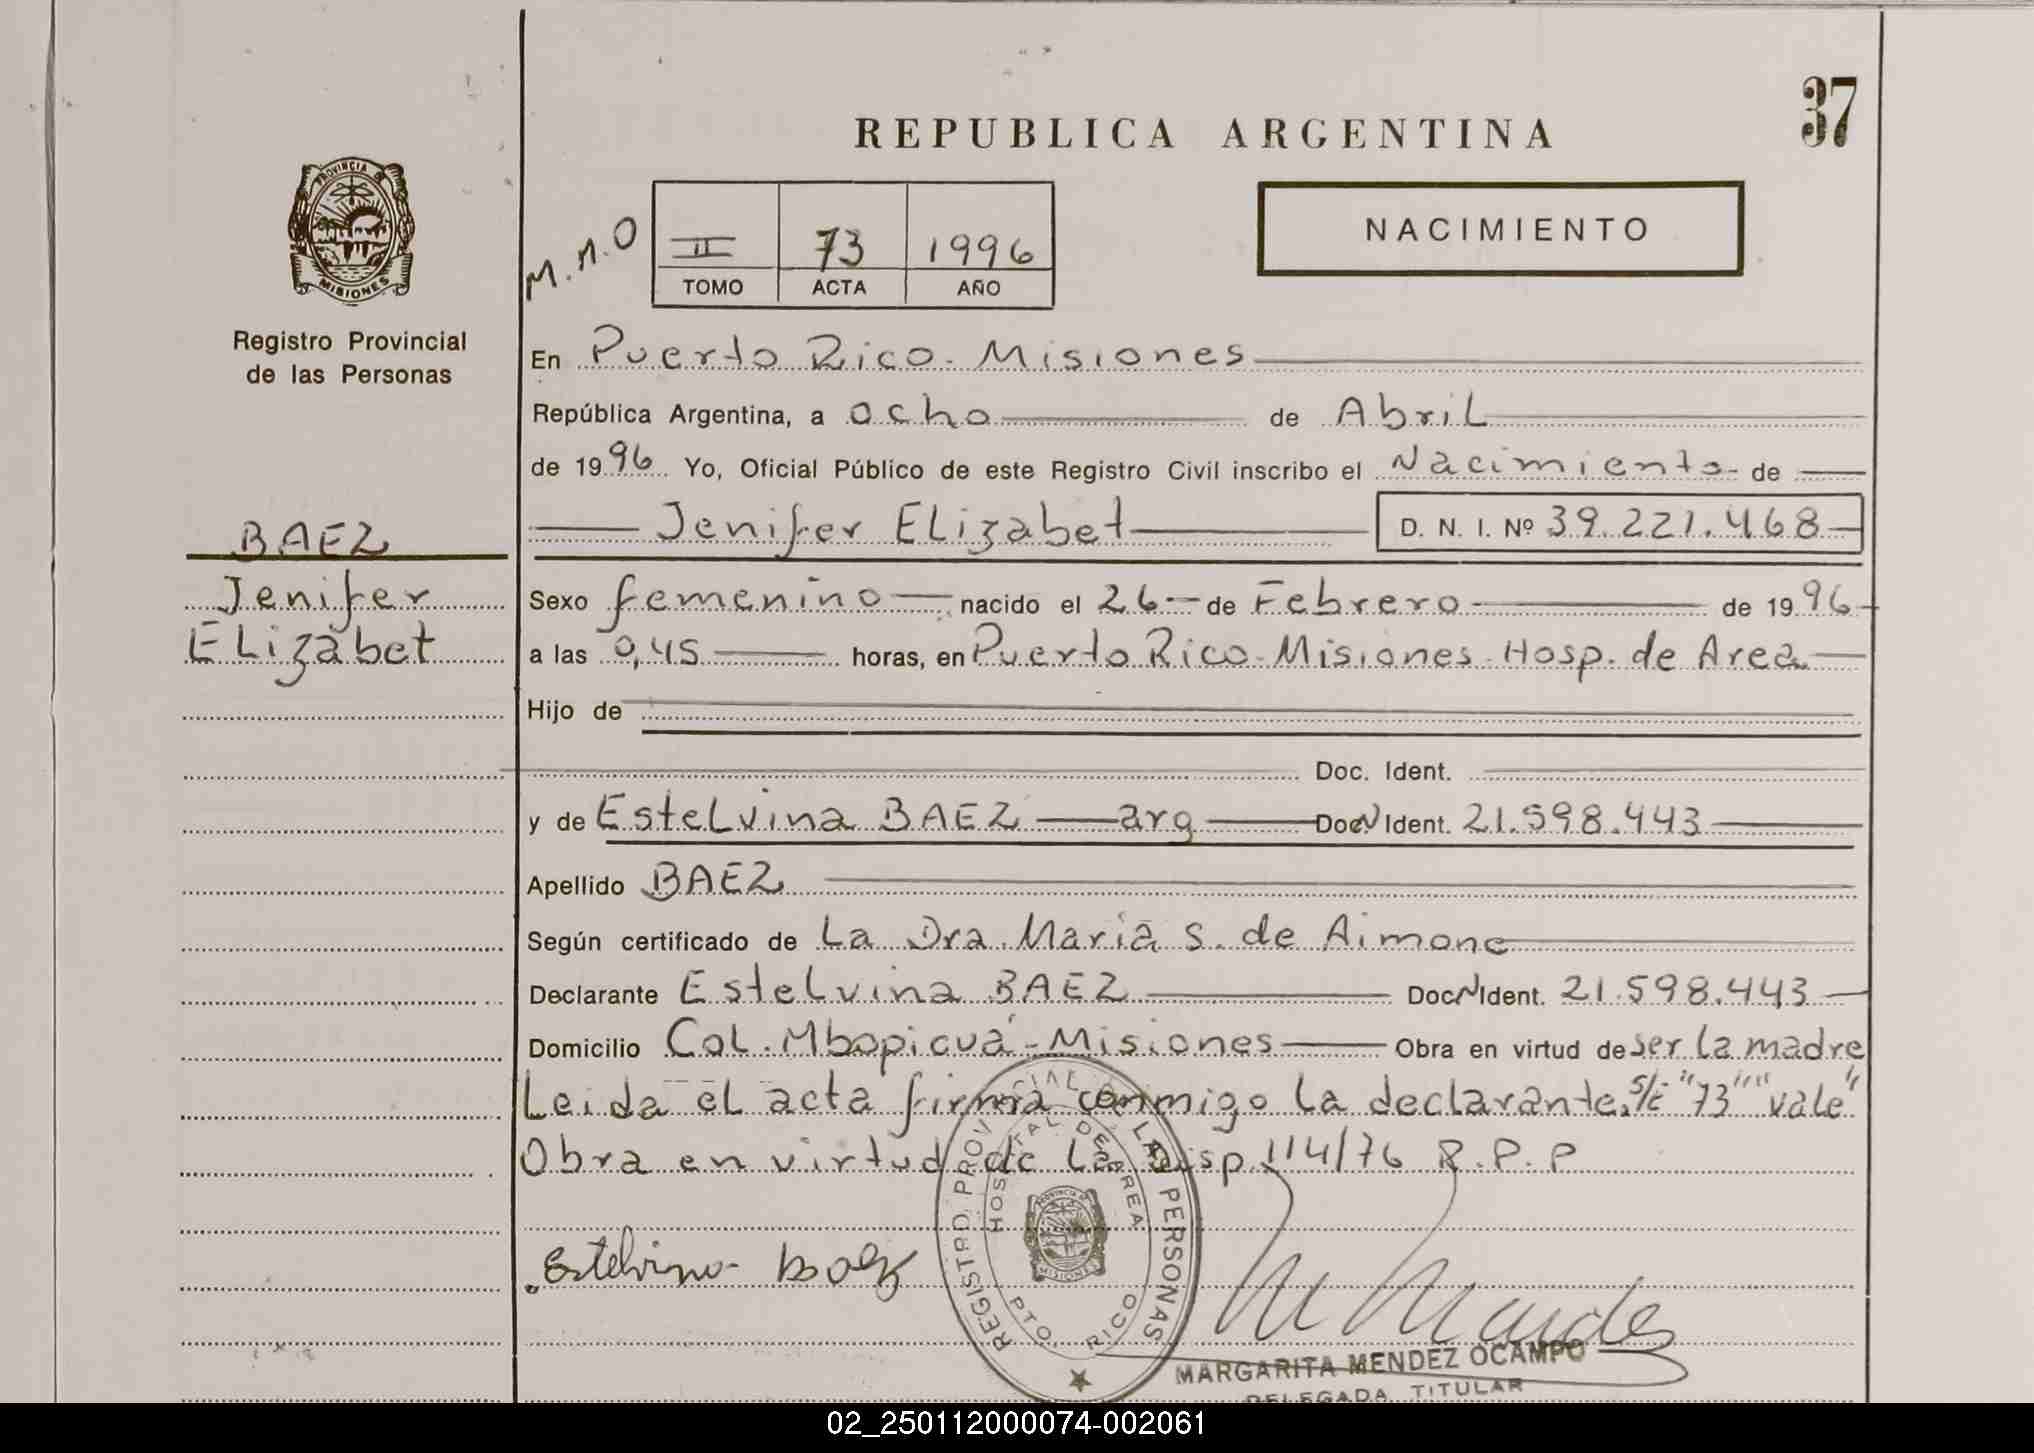 37
REPUBLICA ARGENTINA
PROVINCIA DE
MISIONES
Registro Provincial
de las Personas
M.M.O
II 73 1996
TOMO ACTA AÑO
NACIMIENTO
En Puerto Rico - Misiones
República Argentina, a ocho de Abril
de 1996 Yo, Oficial Público de este Registro Civil inscribo el Nacimiento de
BAEZ
Jenifer Elizabet D. N. I. Nº 39.221.468
Jenifer
Elizabet
Sexo femenino nacido el 26 de Febrero de 1996
a las 0,45 horas, en Puerto Rico - Misiones - Hosp. de Area
Hijo de
Doc. Ident.
y de Estelvina BAEZ arg Doc N Ident. 21.598.443
Apellido BAEZ
Según certificado de La Dra. Maria S. de Aimone
Declarante Estelvina BAEZ Doc N Ident. 21.598.443
Domicilio Col. Mbopicuá - Misiones Obra en virtud de ser la madre
Leida el acta firma conmigo la declarante. s/é "73" "vale"
Obra en virtud de La Disp. 114/76 R.P.P
Estelvina baez
REGISTRO PROVINCIAL DE LAS PERSONAS
HOSPITAL DE AREA
PTO. RICO
M Mendez
MARGARITA MENDEZ OCAMPO
DELEGADA TITULAR
02_250112000074-002061